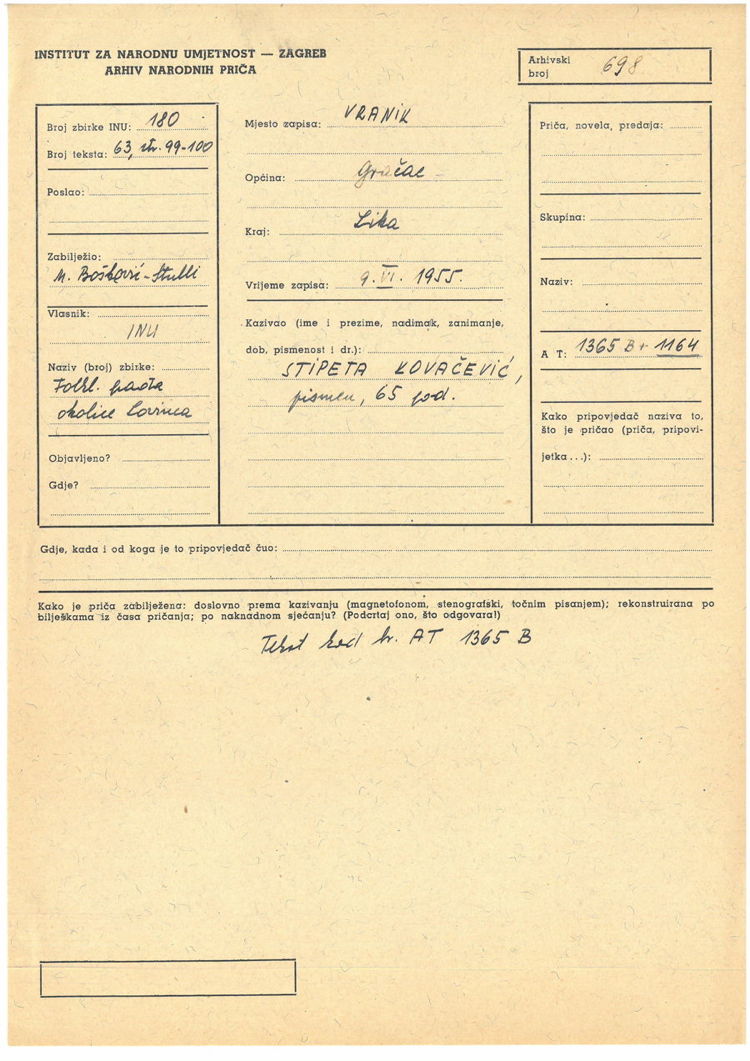 INSTITUT ZA NARODNU UMJETNOST — ZAGREB
ARHIV NARODNIH PRIČA
Arhivski broj 698
Broj zbirke INU: 180
Broj teksta: 63, str. 99-100
Poslao:
Zabilježio:
M. Bošković-Stulli
Vlasnik:
INU
Naziv (broj) zbirke:
Folkl. građa
okolice Lovinca
Objavljeno?
Gdje?
Mjesto zapisa: VRANIK
Općina: Gračac
Kraj: Lika
Vrijeme zapisa: 9. VI. 1955.
Kazivao (ime i prezime, nadimak, zanimanje,
dob, pismenost i dr.):
STIPETA KOVAČEVIĆ,
pismen, 65 god.
Priča, novela, predaja:
Skupina:
Naziv:
A T: 1365 B + 1164
Kako pripovjedač naziva to,
što je pričao (priča, pripovi-
jetka...):
Gdje, kada i od koga je to pripovjedač čuo:
Kako je priča zabilježena: doslovno prema kazivanju (magnetofonom, stenografski, točnim pisanjem); rekonstruirana po
bilješkama iz časa pričanja; po naknadnom sjećanju? (Podcrtaj ono, što odgovara!)
Tekst kod br. AT 1365 B